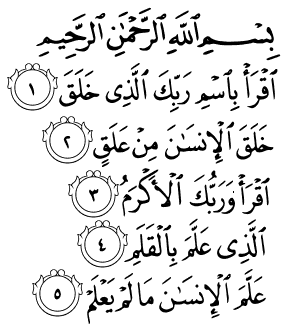 بِسْمِ ٱللَّهِ ٱلرَّحْمَٰنِ ٱلرَّحِيمِ
ٱقْرَأْ بِٱسْمِ رَبِّكَ ٱلَّذِى خَلَقَ ١
خَلَقَ ٱلْإِنسَٰنَ مِنْ عَلَقٍ ٢
ٱقْرَأْ وَرَبُّكَ ٱلْأَكْرَمُ ٣
ٱلَّذِى عَلَّمَ بِٱلْقَلَمِ ٤
عَلَّمَ ٱلْإِنسَٰنَ مَا لَمْ يَعْلَمْ ٥